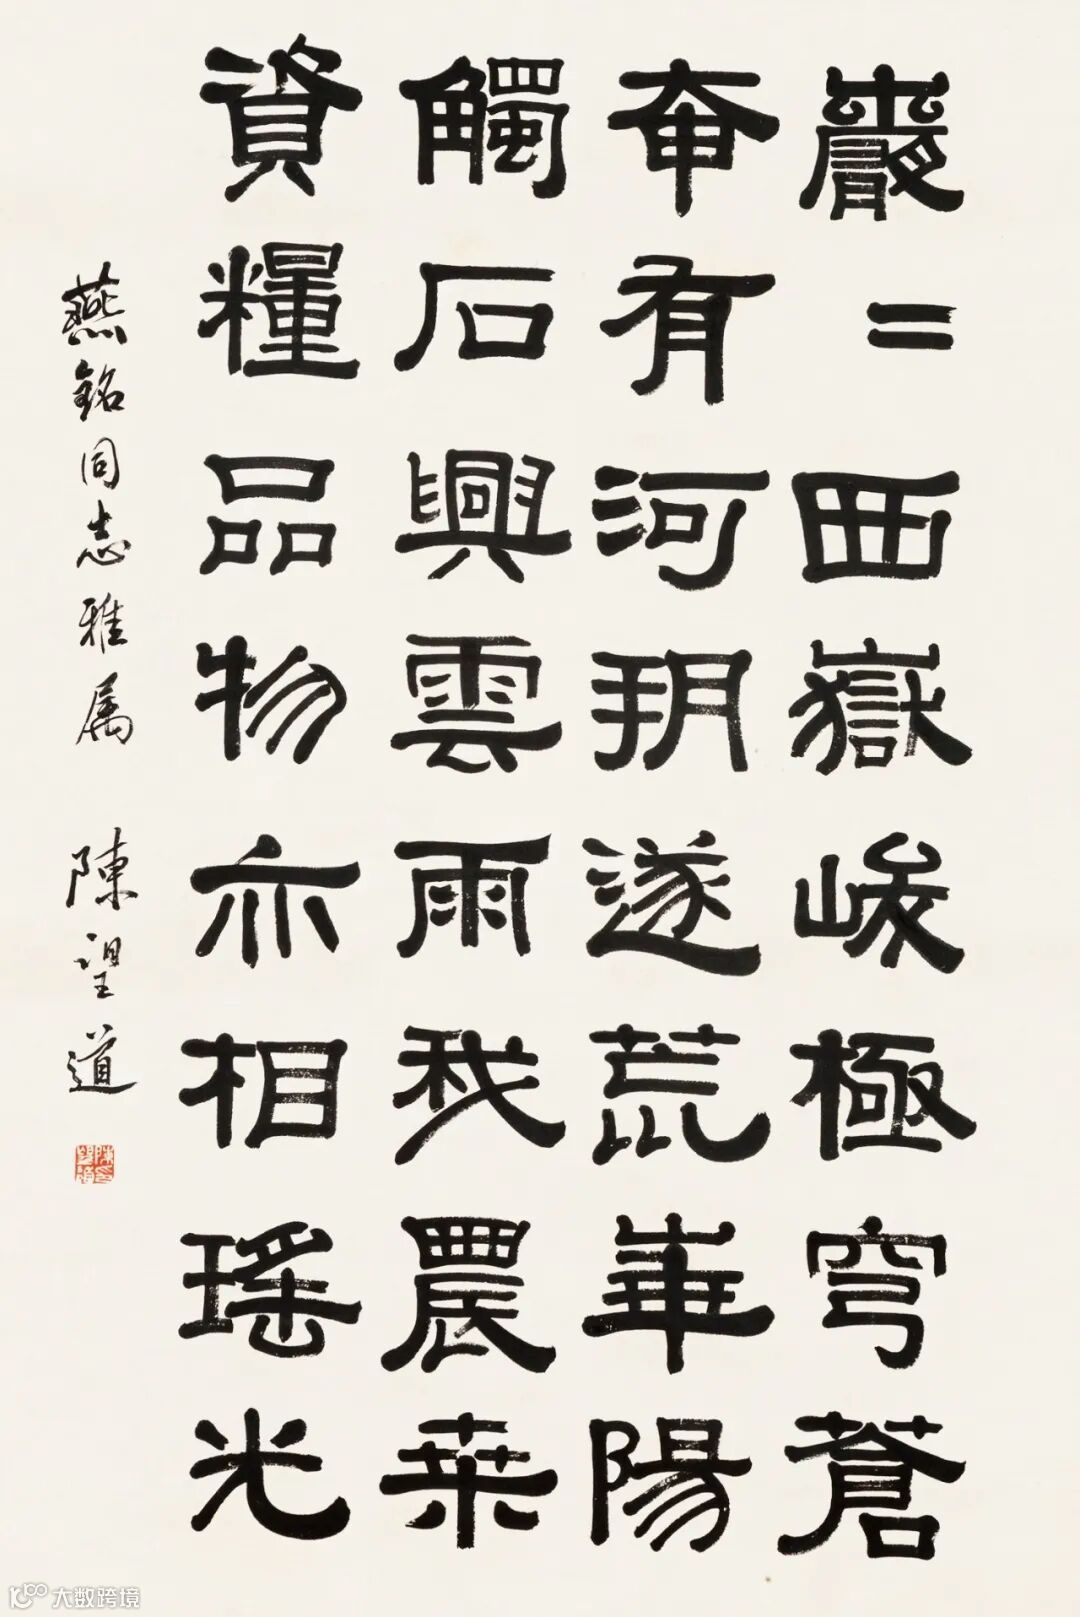 巖=西嶽峻極穹蒼
奄有河朔遂荒華陽
觸石興雲雨我農桒
資糧品物亦相瑤光
燕銘同志雅属
陳望道
大数跨境